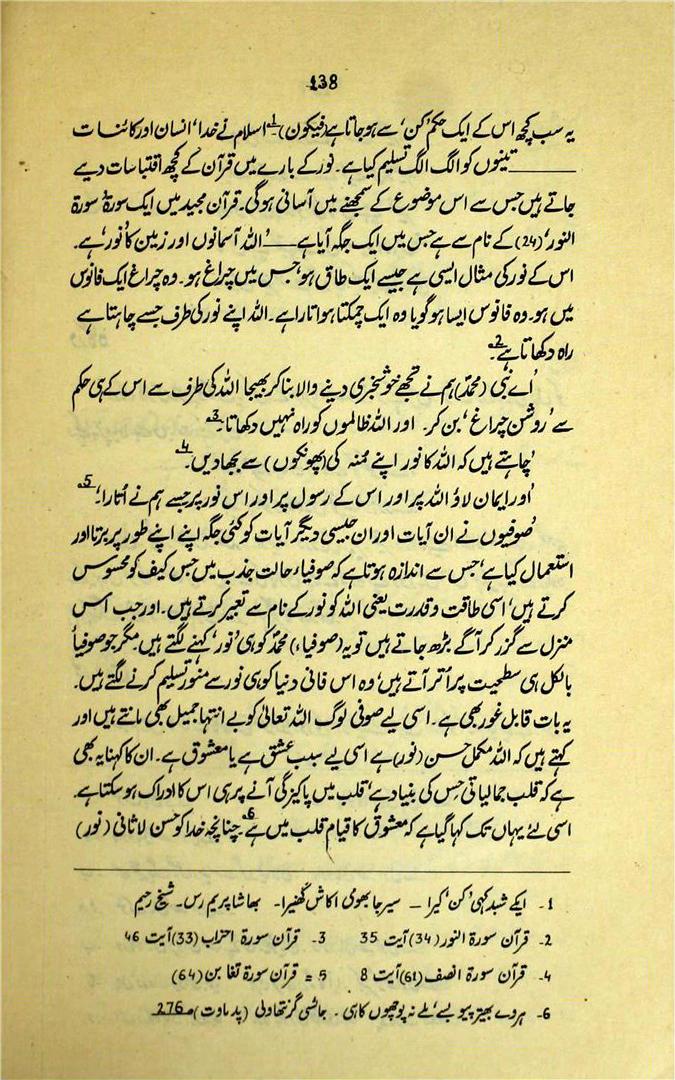 138
یہ سب کچھ اس کے ایک حکم 'کن' سے ہو جاتا ہے (فیکون)1؎ اسلام نے خدا، انسان اور کائنات
ــــــــ تینوں کو الگ الگ تسلیم کیا ہے۔ نور کے بارے میں قرآن کے کچھ اقتباسات دیے
جاتے ہیں جس سے اس موضوع کے سمجھنے میں آسانی ہوگی۔ قرآن مجید میں ایک سورۃ سورۃ
النور (24) کے نام سے ہے جس میں ایک جگہ آیا ہے ــــ 'اللہ آسمانوں اور زمین کا نور' ہے۔
اس کے نور کی مثال ایسی ہے جیسے ایک طاق ہو، جس میں چراغ ہو۔ وہ چراغ ایک فانوس
میں ہو۔ وہ فانوس ایسا ہو گویا وہ ایک چمکتا ہوا تارا ہے۔ اللہ اپنے نور کی طرف جسے چاہتا ہے
راہ دکھاتا ہے2؎۔
'اے نبی (محمدؐ) ہم نے تجھے خوشخبری دینے والا بنا کر بھیجا اللہ کی طرف سے اس کے ہی حکم
سے 'روشن چراغ' بن کر۔ اور اللہ ظالموں کو راہ نہیں دکھاتا۔3؎
'چاہتے ہیں کہ اللہ کا نور اپنے منہ کی (پھونکوں) سے بجھا دیں۔4؎
'اور ایمان لاؤ اللہ پر اور اس کے رسول پر اور اس نور پر جسے ہم نے اُتارا۔'5؎
صُوفیوں نے ان آیات اور ان جیسی دیگر آیات کو کئی جگہ اپنے اپنے طور پر برتا اور
استعمال کیا ہے، جس سے اندازہ ہوتا ہے کہ صوفیاء حالت جذب میں جس کیف کو محسوس
کرتے ہیں، اسی طاقت و قدرت یعنی اللہ کو نور کے نام سے تعبیر کرتے ہیں۔ اور جب اس
منزل سے گزر کر آگے بڑھ جاتے ہیں تو یہ (صوفیاء) محمدؐ کو ہی 'نور' کہنے لگتے ہیں مگر جو صوفیاُ
بالکل ہی سطحیت پر اُتر آتے ہیں، وہ اس فانی دنیا کو ہی نور سے منور تسلیم کرنے لگتے ہیں۔
یہ بات قابل غور بھی ہے۔ اسی لیے صوفی لوگ اللہ تعالیٰ کو بے انتہا جمیل بھی مانتے ہیں اور
کہتے ہیں کہ اللہ مکمل حسن (نور) ہے اسی لیے سبب عشق ہے یا معشوق ہے۔ ان کا کہنا یہ بھی
ہے کہ قلب جمالیاتی حِس کی بنیاد ہے، قلب میں پاکیزگی آنے پر ہی اس کا ادراک ہو سکتا ہے۔
اسی لئے یہاں تک کہا گیا ہے کہ معشوق کا قیام قلب میں ہے6؎۔ چنانچہ خدا کو حسن لاثانی (نور)
1۔ ایکے شبد کہی 'کن' کیرا ــ سیرجا بھومی اکاش گھنیرا۔ بھاشا پریم رس۔ شیخ رحیم
2۔ قرآن سورۃ النور (34) آیت 35 3۔ قرآن سورۃ احزاب (33) آیت 46
4۔ قرآن سورۃ انصف (61) آیت 8 5 = قرآن سورۃ تغابن (64)
6۔ ہروے بھیتر پیو بسے، ملے نہ پوچھوں کاہی۔ جائسی گرنتھاولی (پدماوت) ص276